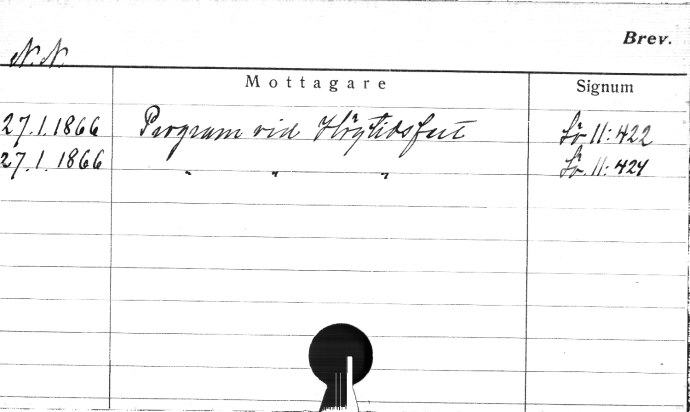 Brev.
N. N.
Mottagare Signum
27.1.1866 Program vid Högtidsfest Sö 11:422
27.1.1866 " " " Sö. 11:424